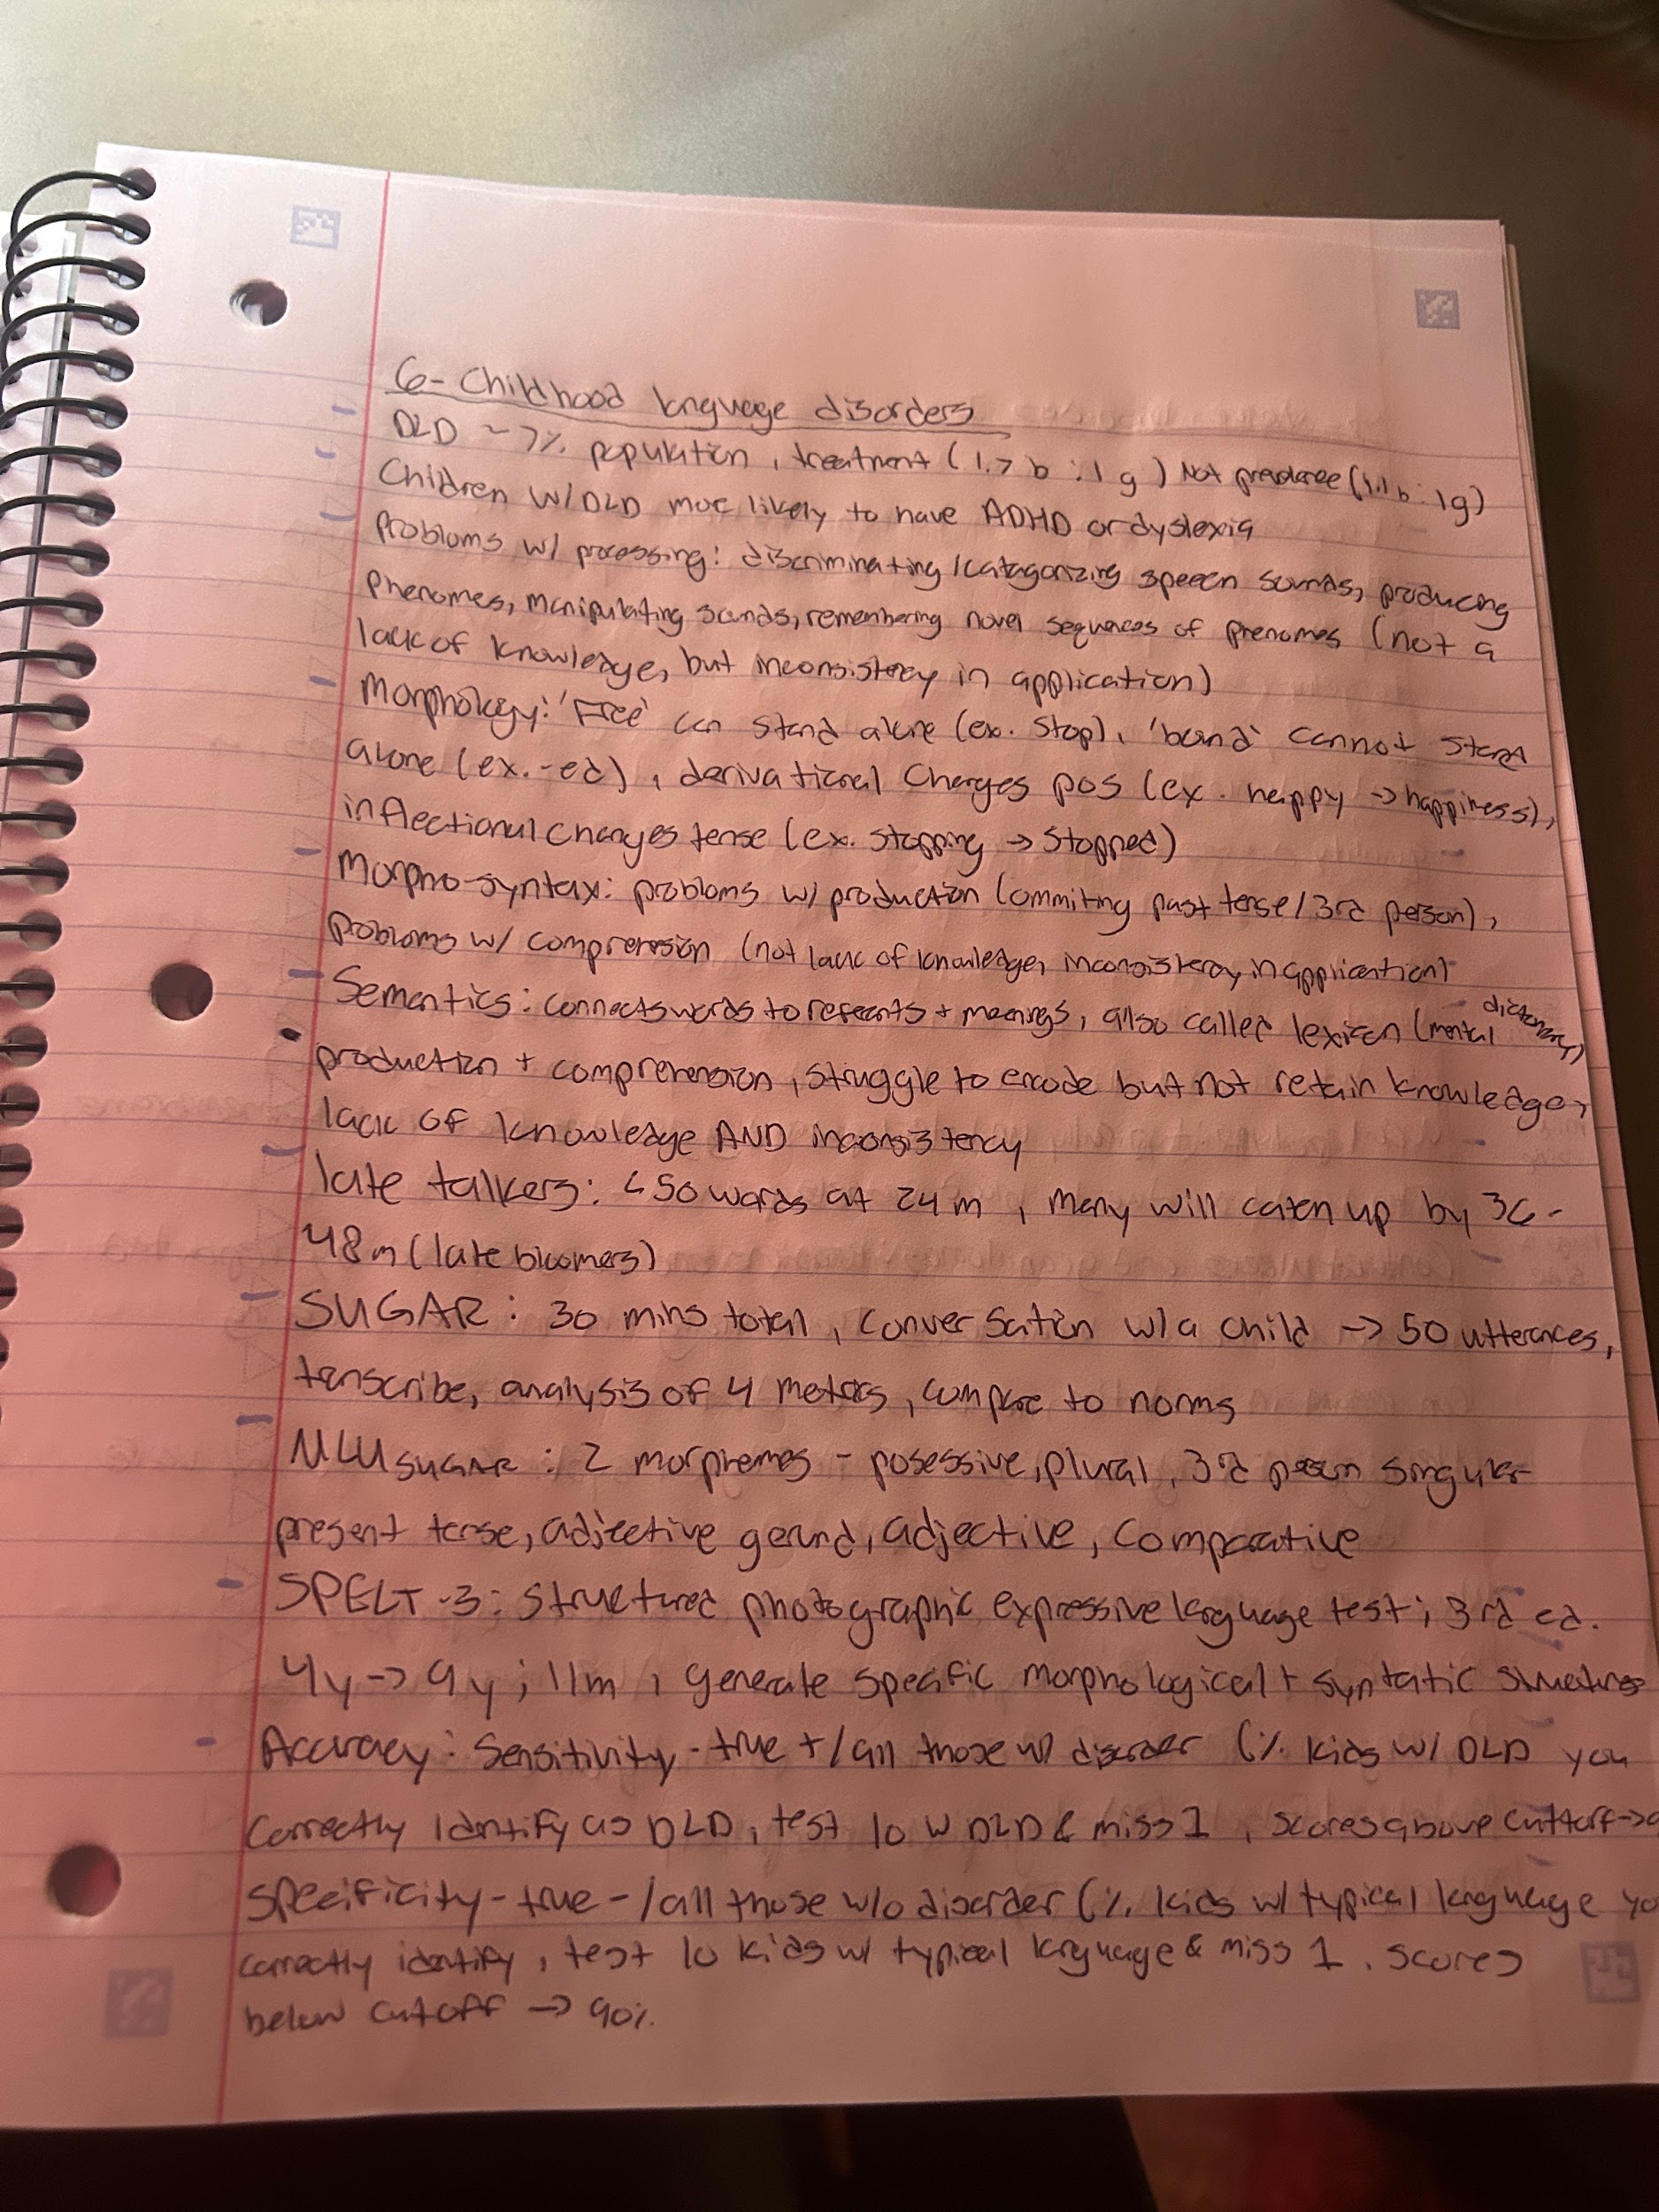 6- Childhood language disorders
DLD ~7% population, treatment (1.7 b : 1 g) Not prevalence (1.1 b : 1g)
Children w/DLD more likely to have ADHD or dyslexia
Problems w/ processing: discriminating/catagorizing speech sounds, producing
Phenomes, manipulating sounds, remembering novel sequences of phenomes (not a
lack of knowledge, but inconsistency in application)
Morphology: 'Free' can stand alone (ex. Stop), 'bound' cannot stand
alone (ex. -ed), derivational Changes pos (ex. happy → happiness),
inflectional changes tense (ex. stopping → stopped)
Morpho-syntax: problems w/ production (ommiting past tense/3rd person),
problems w/ comprehension (not lack of knowledge, inconsistency in application)
Semantics: connects words to referents + meanings, also called lexicon (mental dictionary)
production + comprehension, struggle to encode but not retain knowledge,
lack of knowledge AND inconsistency
late talkers: <50 words at 24m, many will catch up by 36-
48m (late bloomers)
SUGAR: 30 mins total, conversation w/a child → 50 utterances,
transcribe, analysis of 4 metrics, compare to norms
MLU SUGAR: 2 morphemes - posessive, plural, 3rd person singular
present tense, adjective gerund, adjective, comparative
SPELT-3: Structured photographic expressive language test; 3rd ed.
4y → 9y; 11m, generate specific morphological + syntatic structures
Accuracy: Sensitivity - true +/all those w/ disorder (% kids w/ DLD you
correctly identify as DLD, test 10 w DLD & miss 1, scores above cuttoff →
Specificity - true -/all those w/o disorder (% kids w/ typical language yo
correctly identify, test 10 kids w/ typical language & miss 1. Scores
below cutoff → 90%.